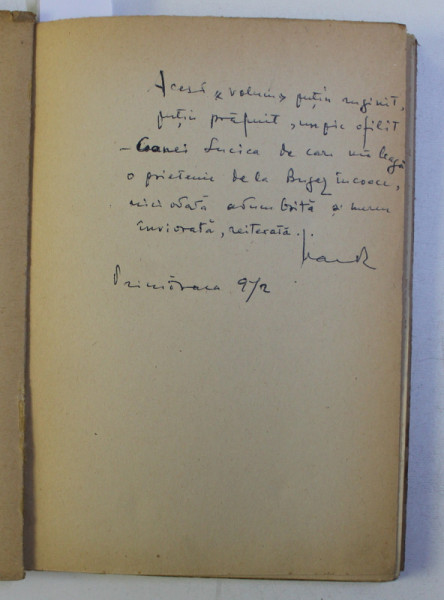 Acest « volum » puțin ruginit,
puțin prăfuit, un pic ofilit
- Coanei Lucica de care mă leagă
o prietenie de la Bugaz încoace,
nici odată adumbrită și mereu
înviorată, reiterată.
Primăvara 972